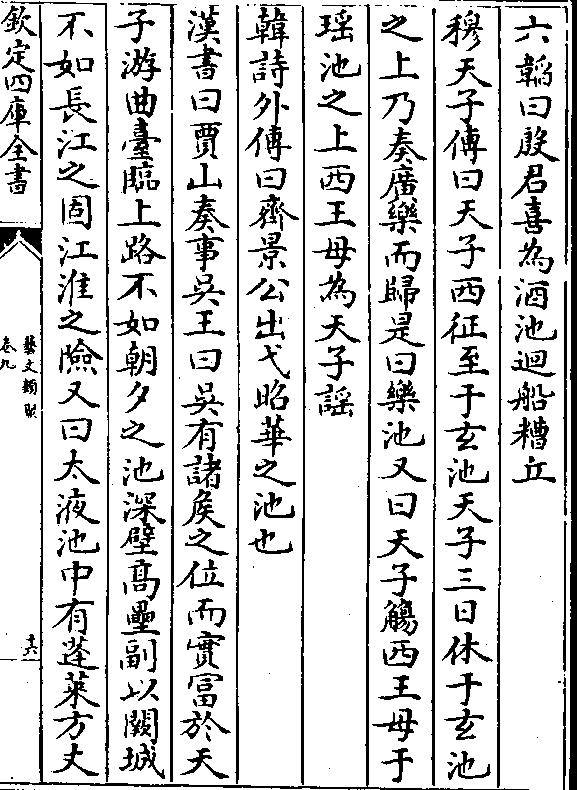 六韜曰殷君喜為酒池迴船糟丘
穆天子傳曰天子西征至于玄池天子三日休于玄池
之上乃奏廣樂而歸是曰樂池又曰天子觴西王母于
瑶池之上西王母為天子謡
韓詩外傳曰齊景公出弋昭華之池也
漢書曰賈山奏事吳王曰吳有諸矦之位而實富於天
子游曲臺臨上路不如朝夕之池深壁髙壘副以闕城
不如長江之固江淮之險又曰太液池中有蓬萊方丈
欽定四庫全書
藝文類聚
卷九
十六